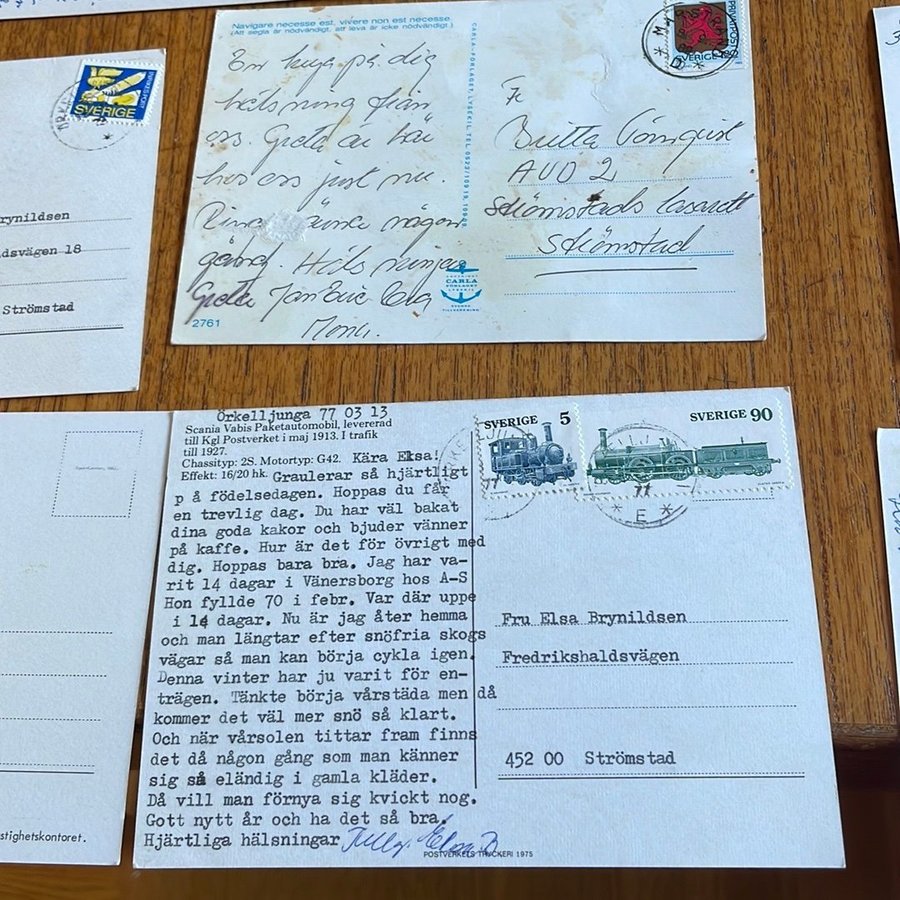 Navigare necesse est, vivere non est necesse
(Att segla är nödvändigt, att leva är icke nödvändigt.)
En kuga på dig
hälsning från
oss. Greta är här
hos oss just nu.
Ring någon
gång. Hälsningar
Greta Jan Eric
Mona.
2761
CARLA-FÖRLAGET, LYSEKIL TEL. 0523/10919, 10949
CARLA
FÖRLAGET
LYSEKIL
SVENSK
TILLVERKNING
PRIVATPOST
SVERIGE
Fr
Britta Törnqvist
AVD 2
Strömstads lasarett
Strömstad
SVERIGE
rynildsen
dsvägen 18
Strömstad
stighetskontoret.
Örkelljunga 77 03 13
Scania Vabis Paketautomobil, levererad
till Kgl Postverket i maj 1913. I trafik
till 1927.
Chassityp: 2S. Motortyp: G42. Kära Elsa!
Effekt: 16/20 hk. Graulerar så hjärtligt
p å födelsedagen. Hoppas du får
en trevlig dag. Du har väl bakat
dina goda kakor och bjuder vänner
på kaffe. Hur är det för övrigt med
dig. Hoppas bara bra. Jag har va-
rit 14 dagar i Vänersborg hos A-S
Hon fyllde 70 i febr. Var där uppe
i 14 dagar. Nu är jag åter hemma
och man längtar efter snöfria skogs
vägar så man kan börja cykla igen.
Denna vinter har ju varit för en-
trägen. Tänkte börja vårstäda men då
kommer det väl mer snö så klart.
Och när vårsolen tittar fram finns
det då någon gång som man känner
sig så eländig i gamla kläder.
Då vill man förnya sig kvickt nog.
Gott nytt år och ha det så bra.
Hjärtliga hälsningar
POSTVERKETS TRYCKERI 1975
SVERIGE 5
SVERIGE 90
77
77
* E *
Fru Elsa Brynildsen
Fredrikshaldsvägen
452 00 Strömstad